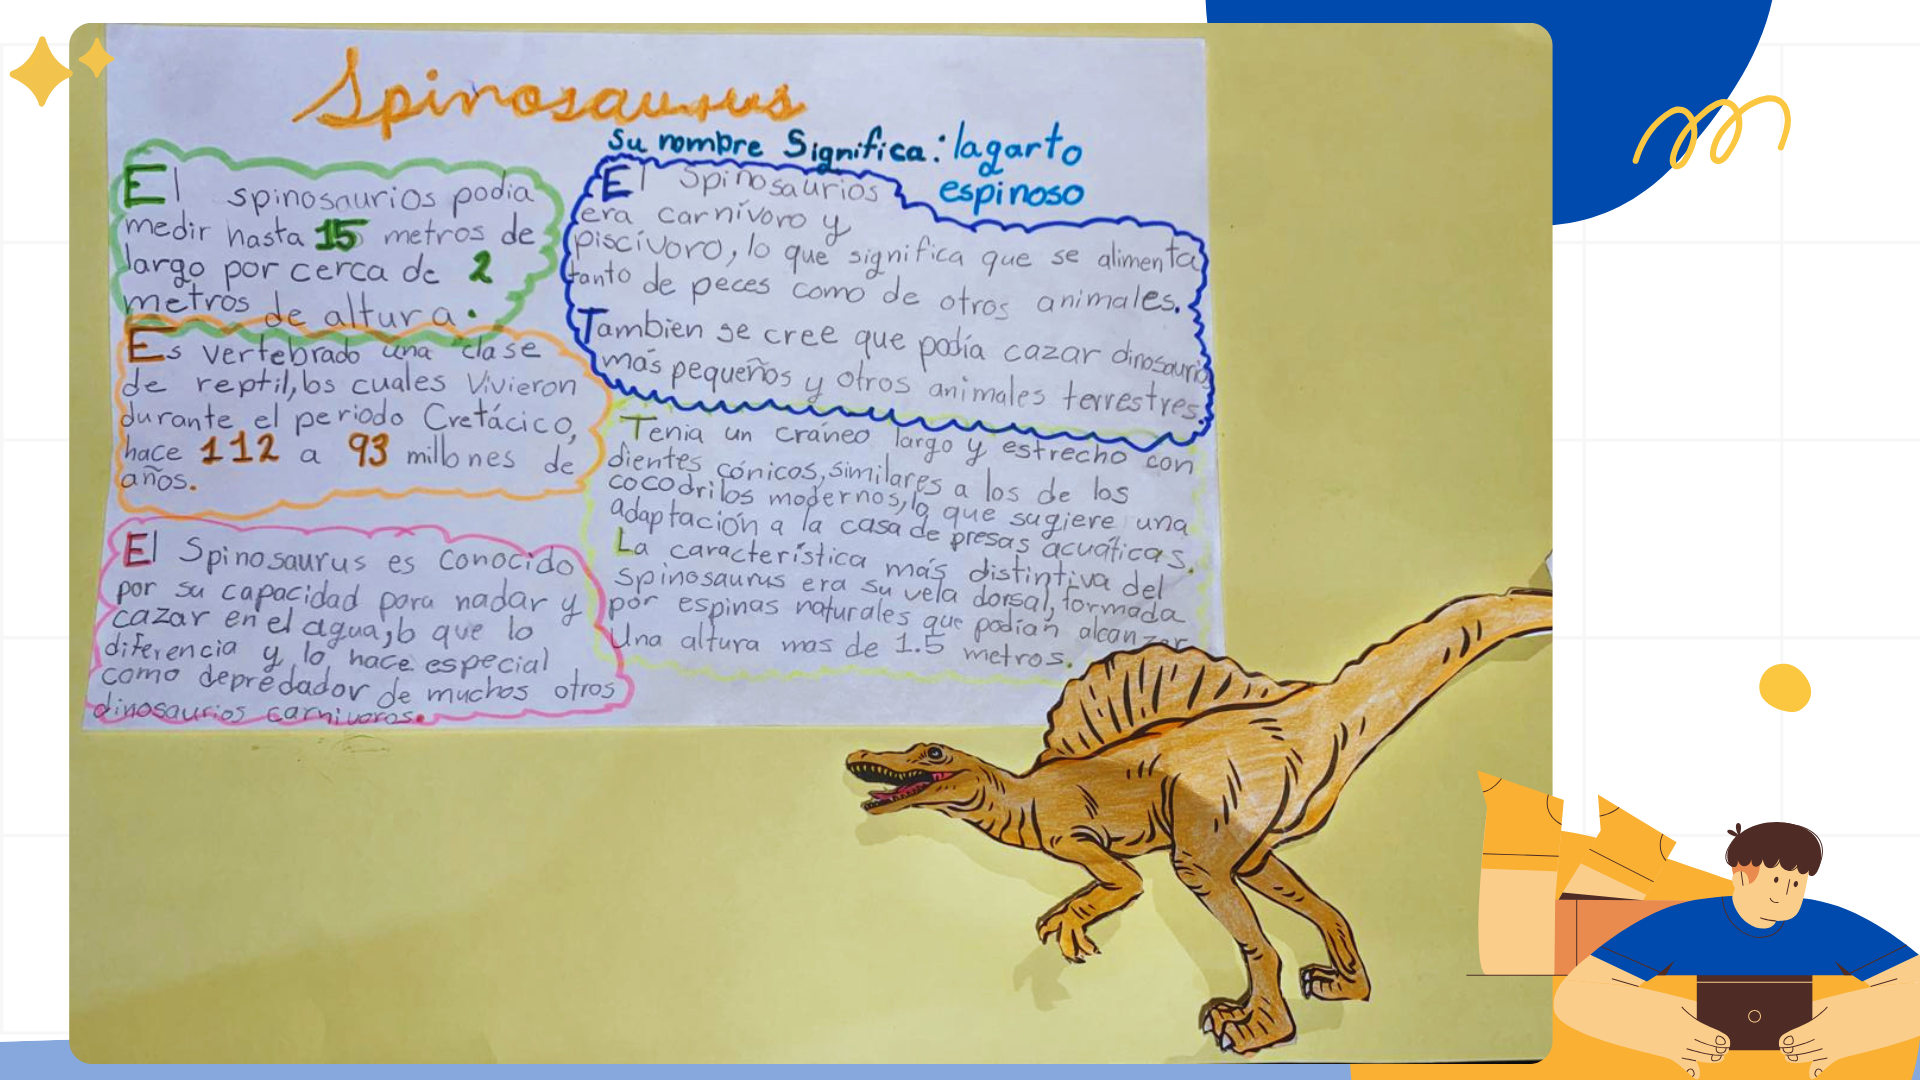 Spinosaurus
Su nombre Significa: lagarto
espinoso
El spinosaurios podia
medir hasta 15 metros de
largo por cerca de 2
metros de altura.
Es vertebrado una clase
de reptil, los cuales vivieron
durante el periodo Cretácico,
hace 112 a 93 millones de
años.
El Spinosaurus es conocido
por su capacidad para nadar y
cazar en el agua, lo que lo
diferencia y lo hace especial
como depredador de muchos otros
dinosaurios carnivoros.
El Spinosaurios
era carnívoro y
piscívoro, lo que significa que se alimenta
tanto de peces como de otros animales.
Tambien se cree que podía cazar dinosaurios
más pequeños y otros animales terrestres.
Tenia un cráneo largo y estrecho con
dientes cónicos, similares a los de los
cocodrilos modernos, lo que sugiere una
adaptación a la casa de presas acuáticas.
La característica más distintiva del
Spinosaurus era su vela dorsal, formada
por espinas naturales que podían alcanzar
Una altura mas de 1.5 metros.